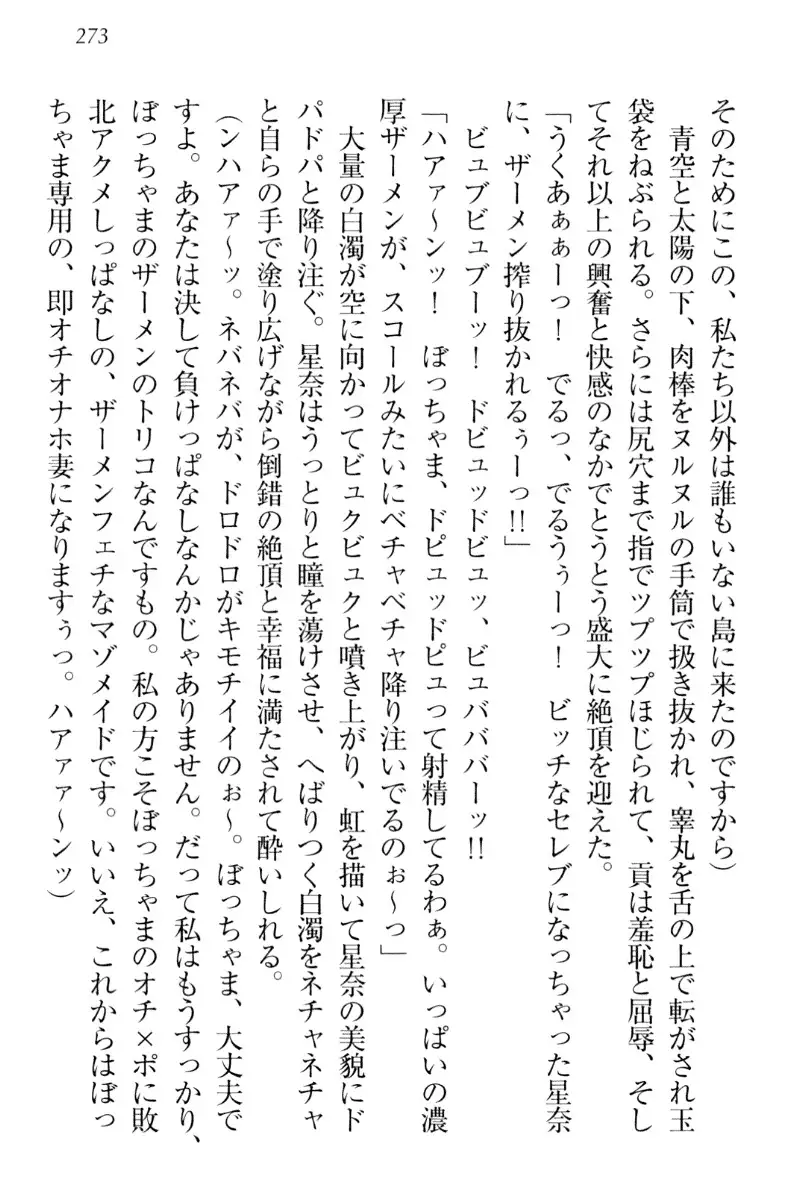 273
そのためにこの、私たち以外は誰もいない島に来たのですから)
青空と太陽の下、肉棒をヌルヌルの手筒で扱き抜かれ、睾丸を舌の上で転がされ玉
袋をねぶられる。さらには尻穴まで指でツプツプほじられて、貢は羞恥と屈辱、そし
てそれ以上の興奮と快感のなかでとうとう盛大に絶頂を迎えた。
「うくあぁぁーっ! でるっ、でるうぅーっ! ビッチなセレブになっちゃった星奈
に、ザーメン搾り抜かれるぅーっ!!」
ビュブビュブーッ! ドビュッドビュッ、ビュバババーッ!!
「ハアァ〜ンッ! ぼっちゃま、ドピュッドピュって射精してるわぁ。いっぱいの濃
厚ザーメンが、スコールみたいにベチャベチャ降り注いでるのぉ〜っ」
大量の白濁が空に向かってビュクビュクと噴き上がり、虹を描いて星奈の美貌にド
パドパと降り注ぐ。星奈はうっとりと瞳を蕩けさせ、へばりつく白濁をネチャネチャ
と自らの手で塗り広げながら倒錯の絶頂と幸福に満たされて酔いしれる。
(ンハアァ〜ッ。ネバネバが、ドロドロがキモチイイのぉ〜。ぼっちゃま、大丈夫で
すよ。あなたは決して負けっぱなしなんかじゃありません。だって私はもうすっかり、
ぼっちゃまのザーメンのトリコなんですもの。私の方こそぼっちゃまのオチ×ポに敗
北アクメしっぱなしの、ザーメンフェチなマゾメイドです。いいえ、これからはぼっ
ちゃま専用の、即オチオナホ妻になりますぅっ。ハアァァ〜ンッ)